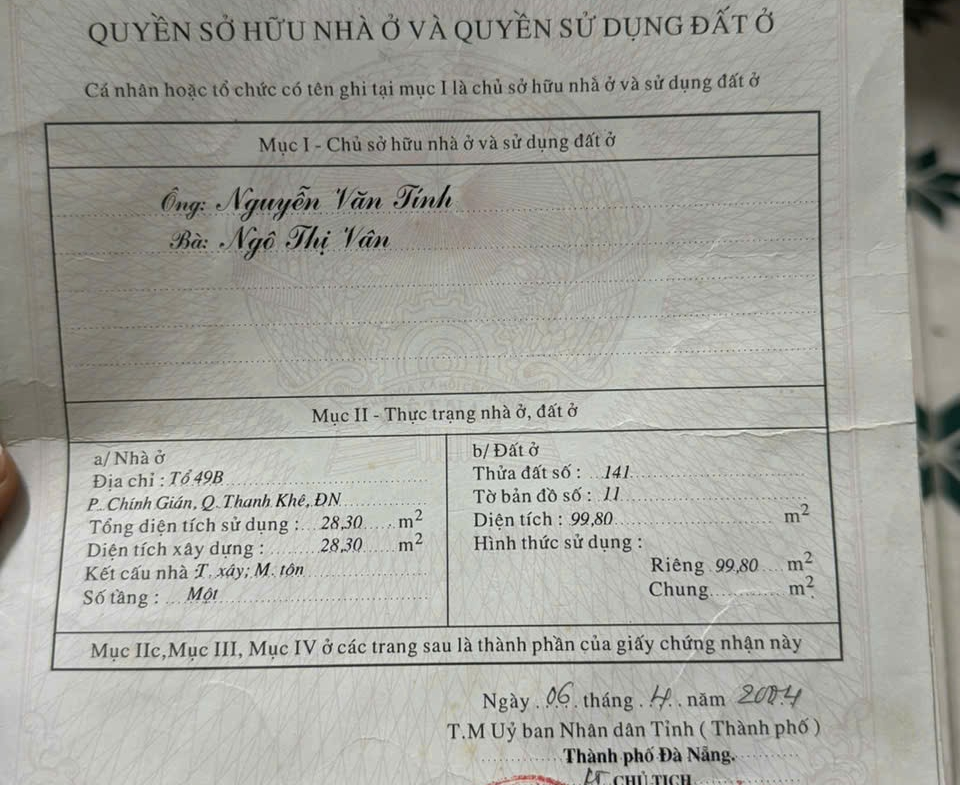 QUYỀN SỞ HỮU NHÀ Ở VÀ QUYỀN SỬ DỤNG ĐẤT Ở
Cá nhân hoặc tổ chức có tên ghi tại mục I là chủ sở hữu nhà ở và sử dụng đất ở
Mục I - Chủ sở hữu nhà ở và sử dụng đất ở
Ông: Nguyễn Văn Tính
Bà: Ngô Thị Vân
Mục II - Thực trạng nhà ở, đất ở
a/ Nhà ở
Địa chỉ : Tổ 49B
P. Chính Gián, Q. Thanh Khê, ĐN
Tổng diện tích sử dụng : 28,30 m²
Diện tích xây dựng : 28,30 m²
Kết cấu nhà : T. xây; M. tôn
Số tầng : Một
b/ Đất ở
Thửa đất số : 141
Tờ bản đồ số : 11
Diện tích : 99,80 m²
Hình thức sử dụng :
Riêng 99,80 m²
Chung m²
Mục IIc,Mục III, Mục IV ở các trang sau là thành phần của giấy chứng nhận này
Ngày 06 tháng 4 năm 2004
T.M Uỷ ban Nhân dân Tỉnh ( Thành phố )
Thành phố Đà Nẵng.
CHỦ TỊCH